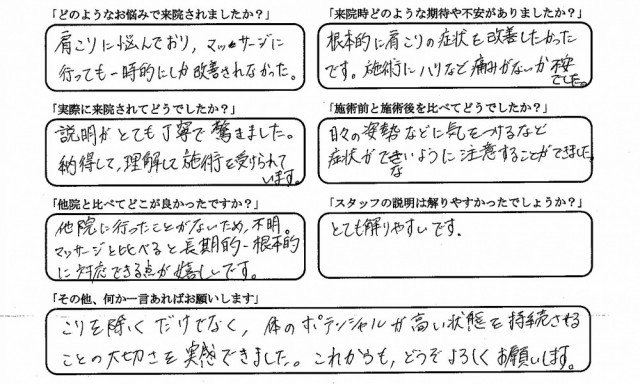 「どのようなお悩みで来院されましたか？」
肩こりに悩んでおり、マッサージに
行っても一時的にしか改善されなかった。
「来院時どのような期待や不安がありましたか？」
根本的に肩こりの症状を改善したかった
です。施術にハリなど痛みがないか不安
でした。
「実際に来院されてどうでしたか？」
説明がとても丁寧で驚きました。
納得して,理解して施術を受けられて
います。
「施術前と施術後を比べてどうでしたか？」
日々の姿勢などに気をつけるなど
症状ができないように注意することができました。
「他院と比べてどこが良かったですか？」
他院に行ったことがないため,不明。
マッサージと比べると長期的-根本的
に対応できる点が嬉しいです。
「スタッフの説明は解りやすかったでしょうか？」
とても解りやすいです。
「その他、何か一言あればお願いします」
こりを除くだけでなく,体のポテンシャルが高い状態を持続させる
ことの大切さを実感できました。これからも,どうぞよろしくお願いします。